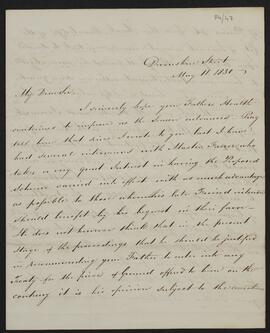 P4/47
Devonshire Street
May 18. 1830
My Dear Sir
I sincerely hope your Fathers Health
continues to improve as the Summer advances. Pray
tell him that since I wrote to you last I have
had several interviews with Martin who
takes a very great Interest in having the Proposed
Scheme carried into effect with as much advantage
as possible to those whom his late Friend intended
should benefit by his bequest in their favor
It does not however think that in the present
Stage of the proceedings that he should be justified
in recommending your Father to enter into any
Treaty for the piece of Ground offered to him on the
contrary it is his opinion subject to the